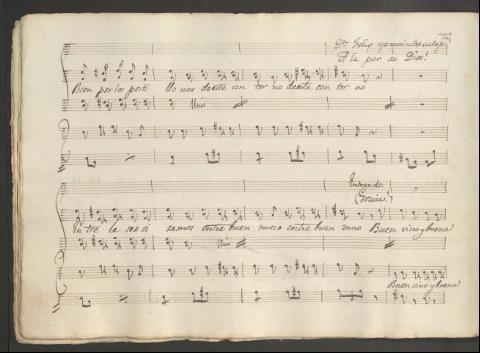 A la paz de Dios!
Bien por los posti llo nes de este con tor no de este con tor no
Unis
Entrando
(Gracias!)
Entre le ce zi remos entre buen mozo entre buen mozo Buen vino y buena
Unis
Buen vino y buena